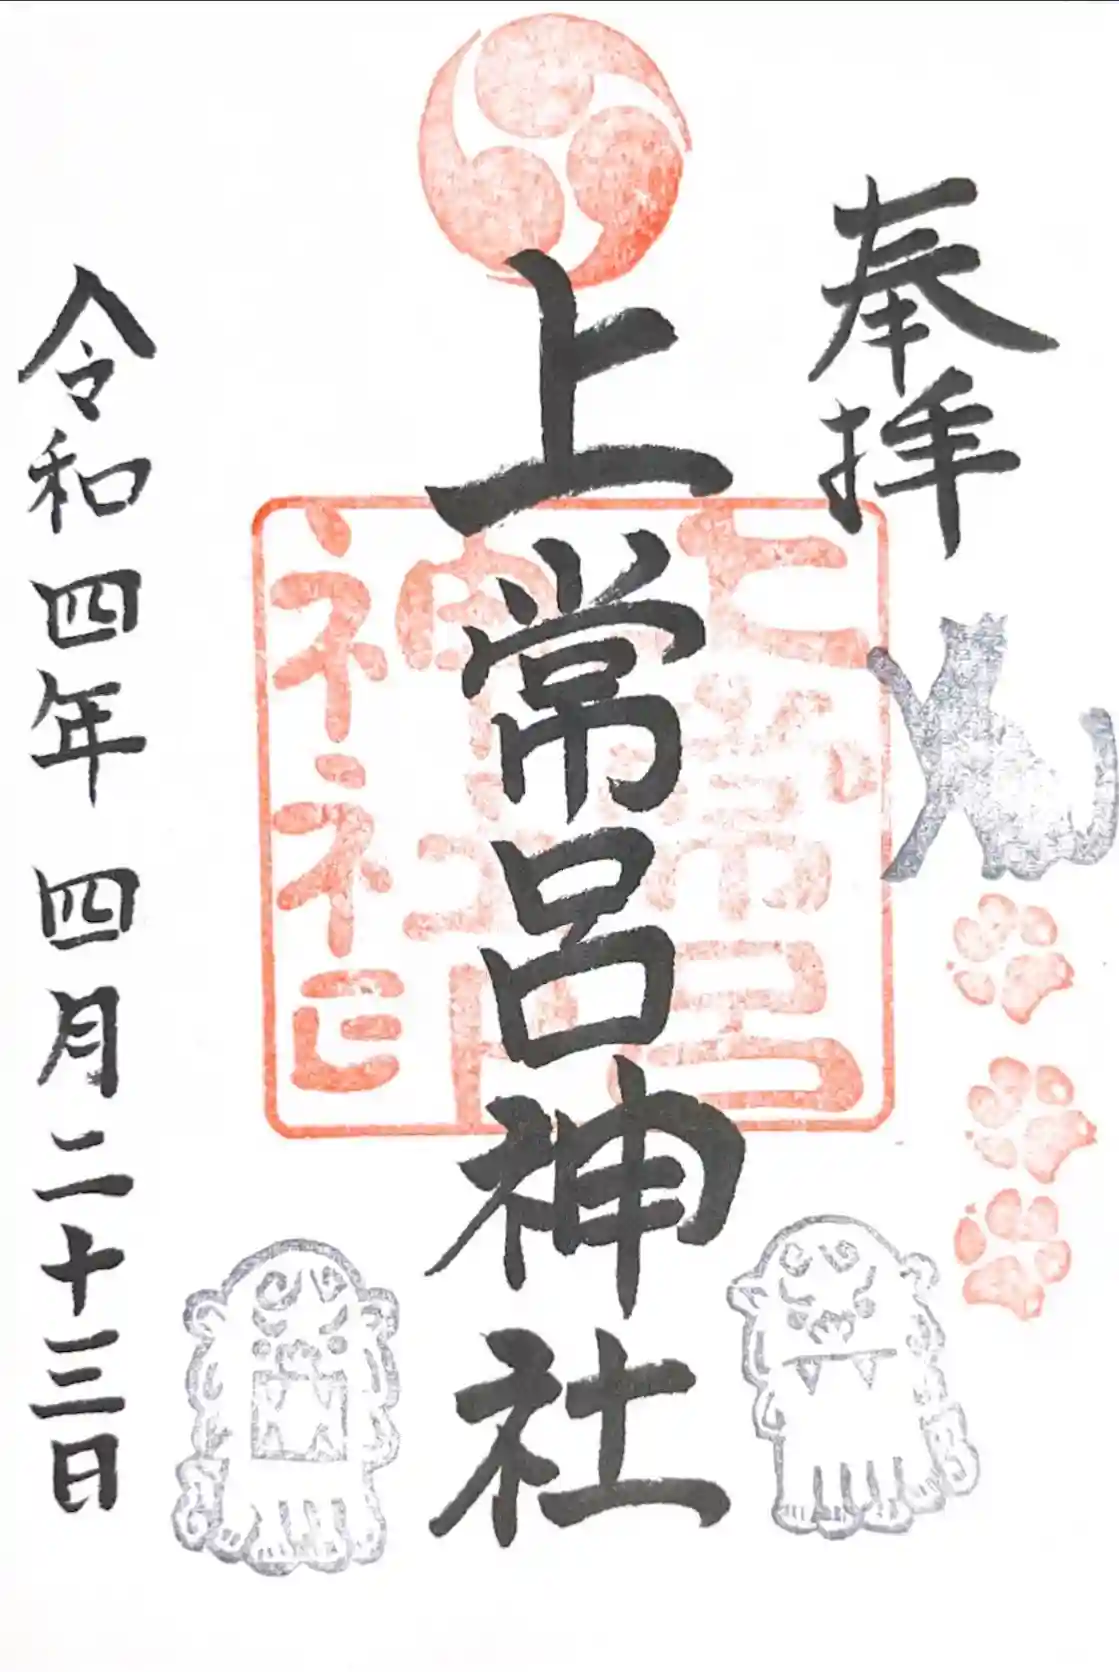 奉拝
上常呂神社
上常呂
神社
令和四年四月二十三日